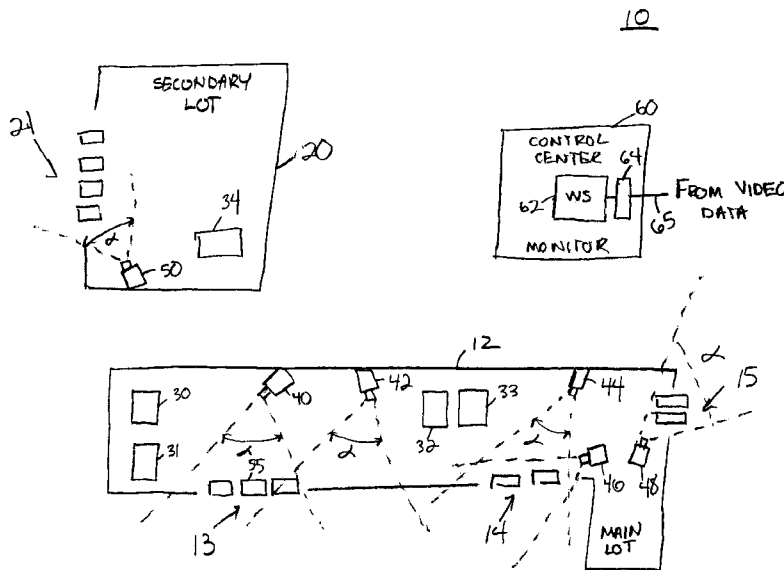 10
SECONDARY
LOT
21
20
34
α
50
60
CONTROL
CENTER
64
62
WS
FROM VIDEO
DATA
65
MONITOR
12
30
40
42
33
44
α
15
31
α
35
α
32
α
46
48
13
14
MAIN
LOT